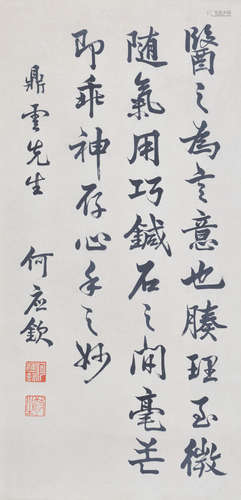 醫之為言意也腠理至微
随氣用巧鍼石之間毫芒
即乖神存心手之妙
鼎雲先生
何应欽